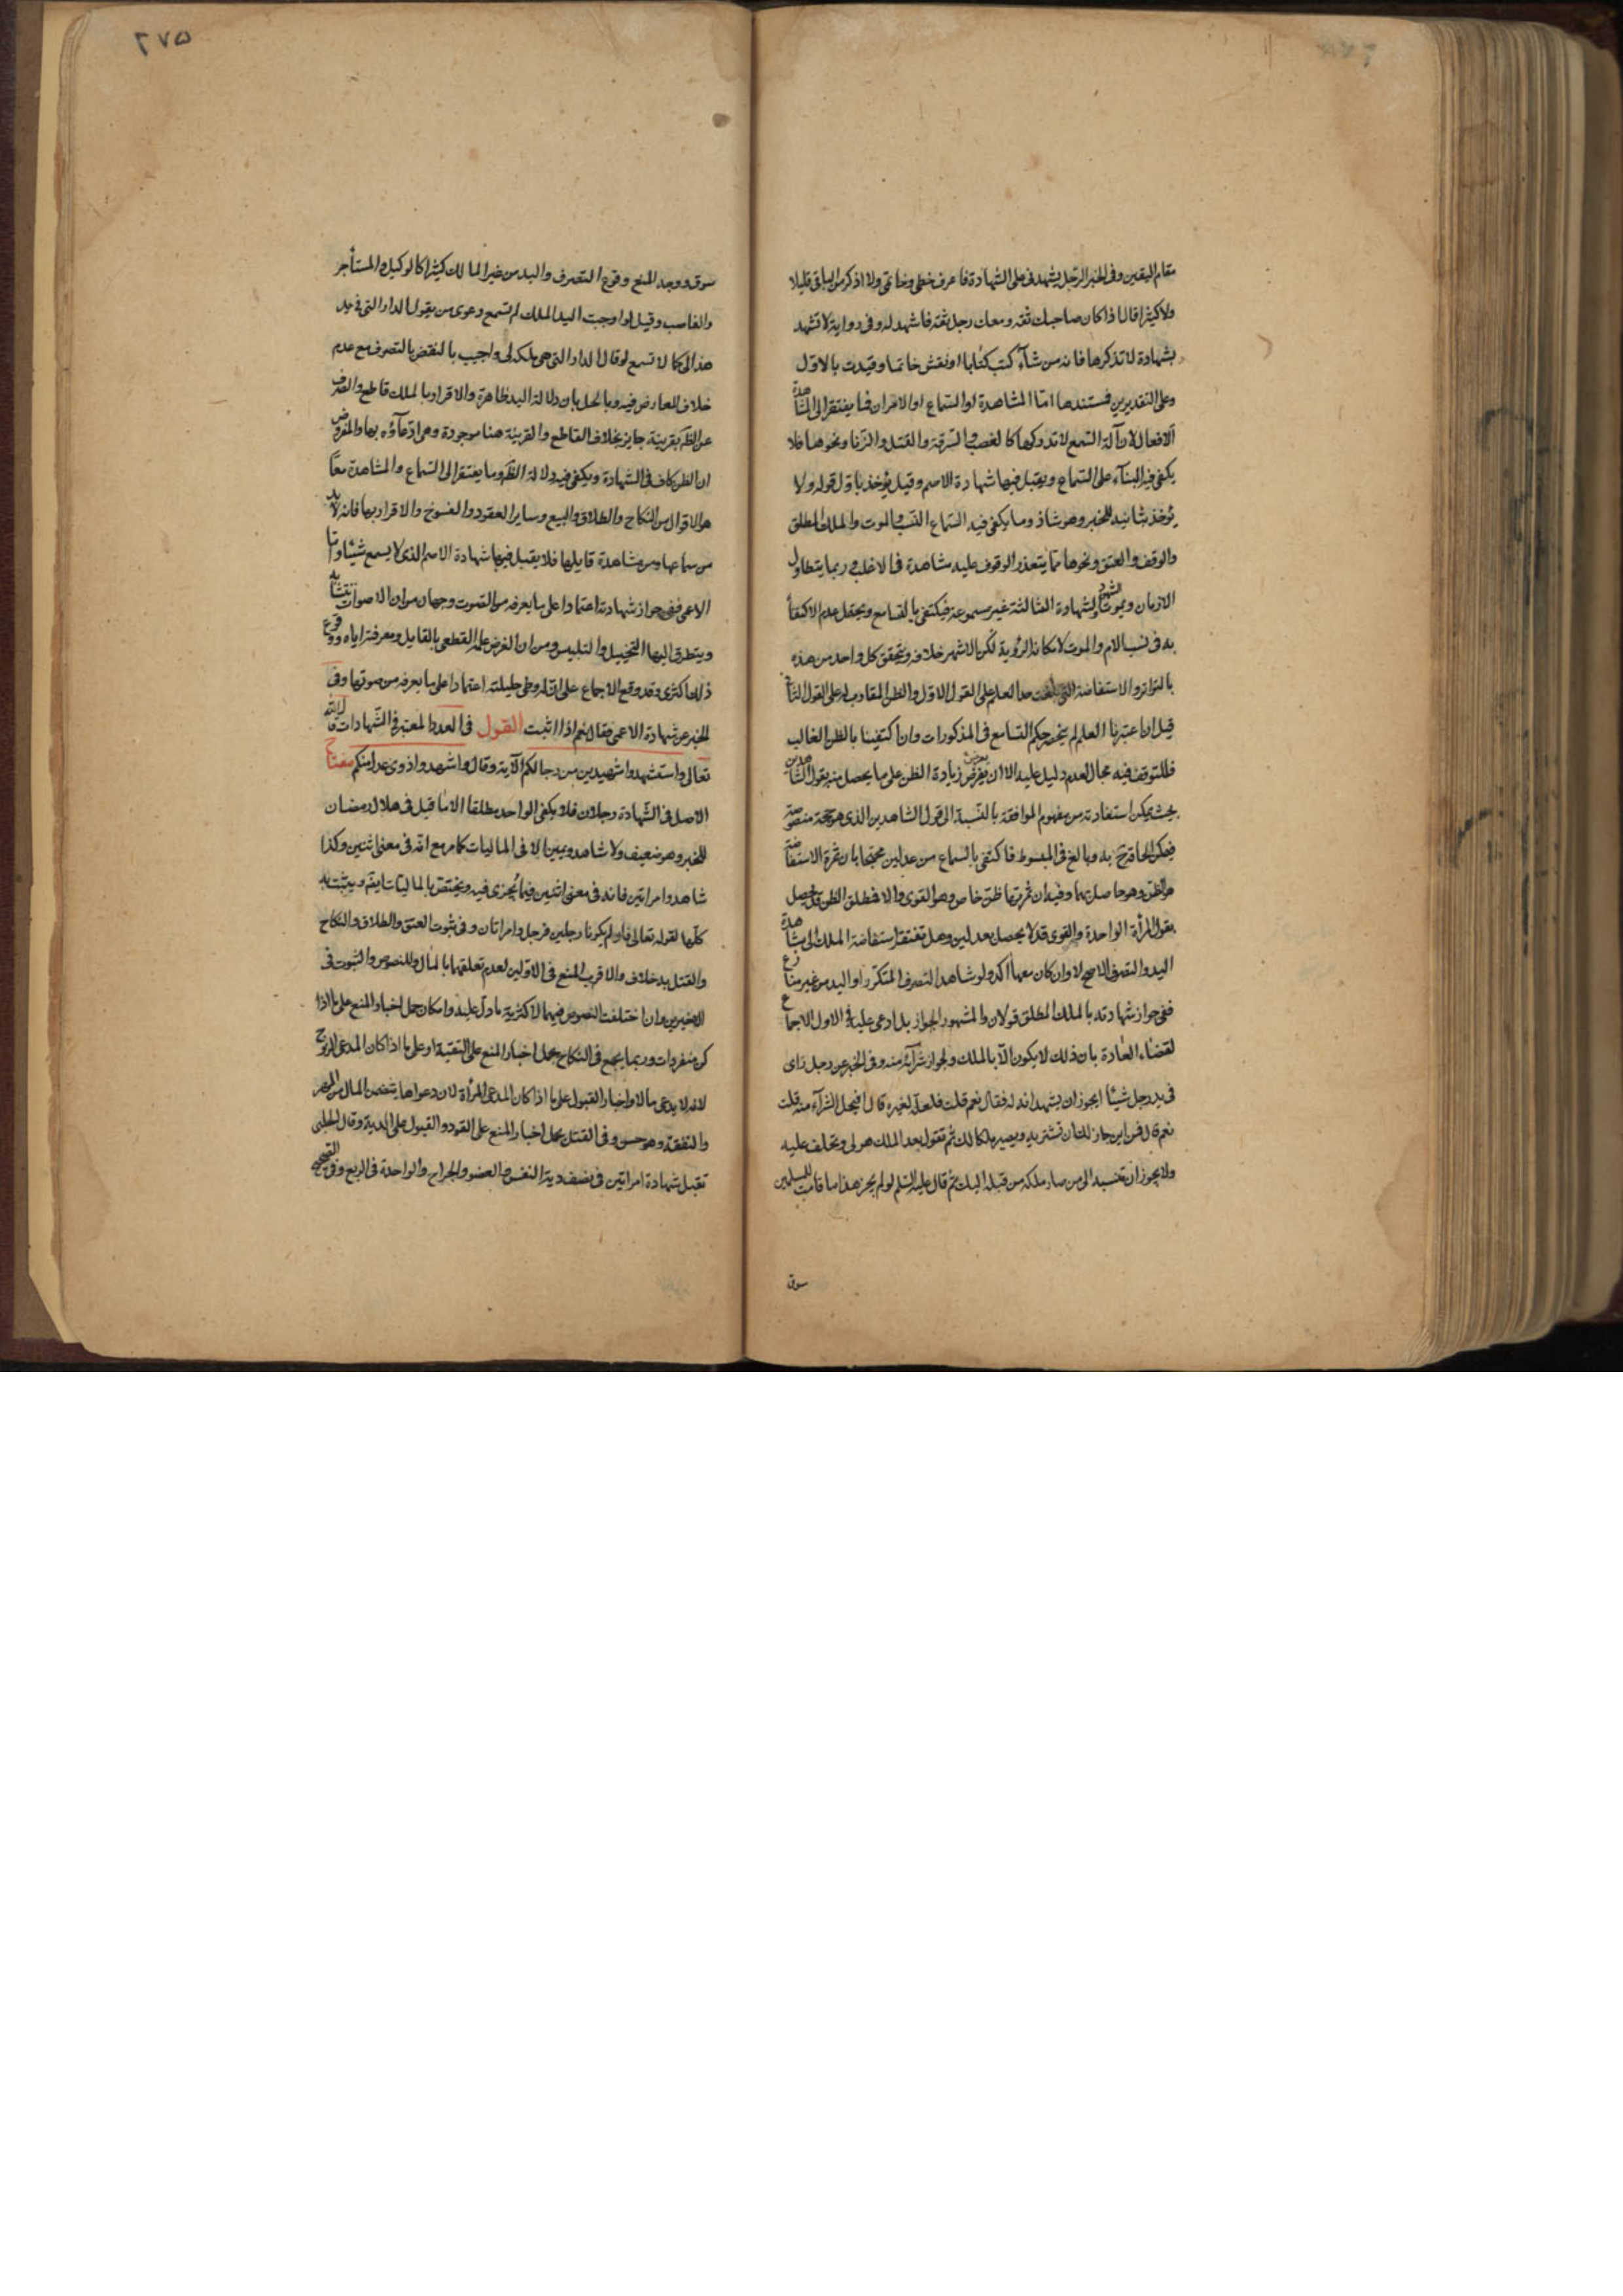 مقام اليقين وفى الخبر الرجل يشهدنى على الشهادة فاعرف خطى وخاتمى ولا اذكر من الباقى قليلا
ولا كثيرا قال اذا كان صاحبك ثقه ومعك رجل ثقه فاشهد له وفى رواية لا تشهد
بشهادة لا تذكرها فانه من شآء كتب كتابا او نقش خاتما وقيدت بالاول
وعلى التقديرين فمستندها امّا المشاهدة او السّماع او الامران فما يفتقر الى المشاهدة
الافعال لانّ آلة السّمع لا تدركها كالغصب والسّرقة والقتل والزّنا ونحوها فلا
يكفى فيه البنآء على السّماع ويقبل فيها شهادة الاصم وقيل يؤخذ باوّل قوله ولا
يؤخذ بثانيه للخبر وهو شاذ وما يكفى فيه السّماع النّسب والموت والملك المطلق
والوقف والعتق ونحوها ممّا يتعذر الوقوف عليه مشاهدة فى الاغلب وربما يتطاول
الازمان ويموت الشهود والشهادة الثالثة غير مسموعة فيكتفى بالتسامع ويحتمل عدم الاكتفآ
به فى نسب الام والموت لامكان الرؤية لكن الاشهر خلافه ويتحقق كل واحد من هذه
بالتواتر والاستفاضة التى بلغت حد العلم على القول الاول والظن المقارب له على القول الثانى
قيل ان اعتبرنا العلم لم ينحصر حكم التسامع فى المذكورات وان اكتفينا بالظن الغالب
فللتوقف فيه مجال لعدم دليل عليه الا ان يفرض زيادة الظن على ما يحصل منه بقول الشاهدين
بحيث يمكن استفادته من مفهوم الموافقة بالنّسبة الى قول الشاهدين الذى هو حجة منصوصة
فيمكن الحاقه ح به وبالغ فى المبسوط فاكتفى بالسماع من عدلين محتجا بان ثمرة الاستفاضة
هو الظن وهو حاصل بهما وفيه ان ثمرتها ظنّ خاص وهو القوى والا فمطلق الظن قد يحصل
بقول المرأة الواحدة والقوى قد لا يحصل بعدلين وهل تفتقر استفاضة الملك الى مشاهدة
اليد والتصرف الاصح لا وان كان معهما آكد ولو شاهد التصرف المتكرّر او اليد من غير منازع
ففى جواز شهادته بالملك المطلق قولان والمشهور الجواز بل ادعى عليه فى الاول الاجماع
لقضاء العادة بان ذلك لا يكون الّا بالملك ولجواز شرآئه منه وفى الخبر عن رجل راى
فى يد رجل شيئا ايجوز ان يشهد انه له فقال نعم قلت فلعلّه لغيره قال افيحل الشرآء منه قلت
نعم قال فمن اين جاز لك ان تشتريه ويصير ملكا لك ثم تقول بعد الملك هو لى وتحلف عليه
ولا يجوز ان تنسبه الى من صار ملكه من قبله اليك ثم قال عليه السّلم لو لم يجز هذا ما قامت للمسلمين
سوق
٢٧٥
سوق ووجه المنع وقوع التصرف واليد من غير المالك كثيرا كالوكيل والمستأجر
والغاصب وقيل لو اوجبت اليد الملك لم تسمع دعوى من يقول الدار التى فى يد
هذا لى كما لا تسمع لو قال الدار التى هى ملكه لى واجيب بالنقض بالتصرف مع عدم
خلاف للعارض فيه وبالحل بان دلالة اليد ظاهرة والاقرار بالملك قاطع والصرف
عن الظّم بقرينة جايز بخلاف القاطع والقرينة هنا موجودة وهى ادّعآؤه بها والمفروض
ان الظن كاف فى الشهادة ويكفى فيه دلالة الظّم وما يفتقر الى السّماع والمشاهدة معاً
هو الاقوال من النكاح والطلاق والبيع وساير العقود والفسوخ والاقرار بها فانه لا بد
من سماعها ومن مشاهدة قايلها فلا يقبل فيها شهادة الاصم الذى لا يسمع شيئا وامّا
الاعمى ففى جواز شهادته اعتمادا على ما يعرفه من الصوت وجهان من ان الاصوات تتشابه
ويتطرق اليها التخييل والتلبيس ومن ان الغرض علمه القطعى بالقايل ومعرفته اياه ووقوع
ذلك اكثرى وقد وقع الاجماع على انّ له وطى حليلته اعتمادا على ما يعرفه من صوتها وفى
الخبر عن شهادة الاعمى فقال نعم اذا اثبت القول فى العدد المعتبر فى الشّهادات قال الله
تعالى واستشهدوا شهيدين من رجالكم الآية وقال واشهدوا ذوى عدل منكم مفتاح
الاصل فى الشّهادة رجلان فلا يكفى الواحد مطلقا الا ما قيل فى هلال رمضان
للخبر وهو ضعيف ولا شاهد ويمين الا فى الماليات كما مر مع انّه فى معنى اثنين وكذا
شاهد وامراتين فانه فى معنى اثنين فيما يجزى فيه ويختصّ بالماليّات ايضم ويثبت به
كلّها لقوله تعالى فان لم يكونا رجلين فرجل وامراتان وفى ثبوت العتق والطلاق والنكاح
والقتل به خلاف والاقرب المنع فى الاوّلين لعدم تعلقهما بالمال وللنصوص والثبوت فى
الاخيرين وان اختلفت النصوص فيهما لاكثرية ما دلّ عليه وامكان حمل اخبار المنع على ما اذا
كن منفردات وربما يجمع فى النكاح بحمل اخبار المنع على التقية او على ما اذا كان المدعى الزوج
لانه لا يدعى مالا واخبار القبول على ما اذا كان المدعى المرأة لان دعواها يتضمن المال من المهر
والنفقة وهو حسن وفى القتل بحمل اخبار المنع على القود والقبول على الدية وقال الحلبى
تقبل شهادة امراتين فى نصف دية النفس والعضو والجراح والواحدة فى الربع وفى الصحيح